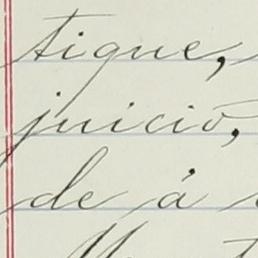 tigue,
juicio,
de á